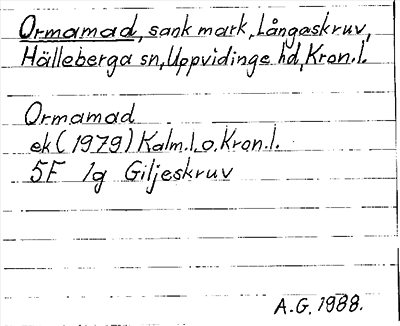 Ormamad, sank mark, Långaskruv,
Hälleberga sn, Uppvidinge hd, Kron.l.
Ormamad
ek (1979) Kalm.l.o.Kron.l.
5F 1g Giljeskruv
A.G. 1988.